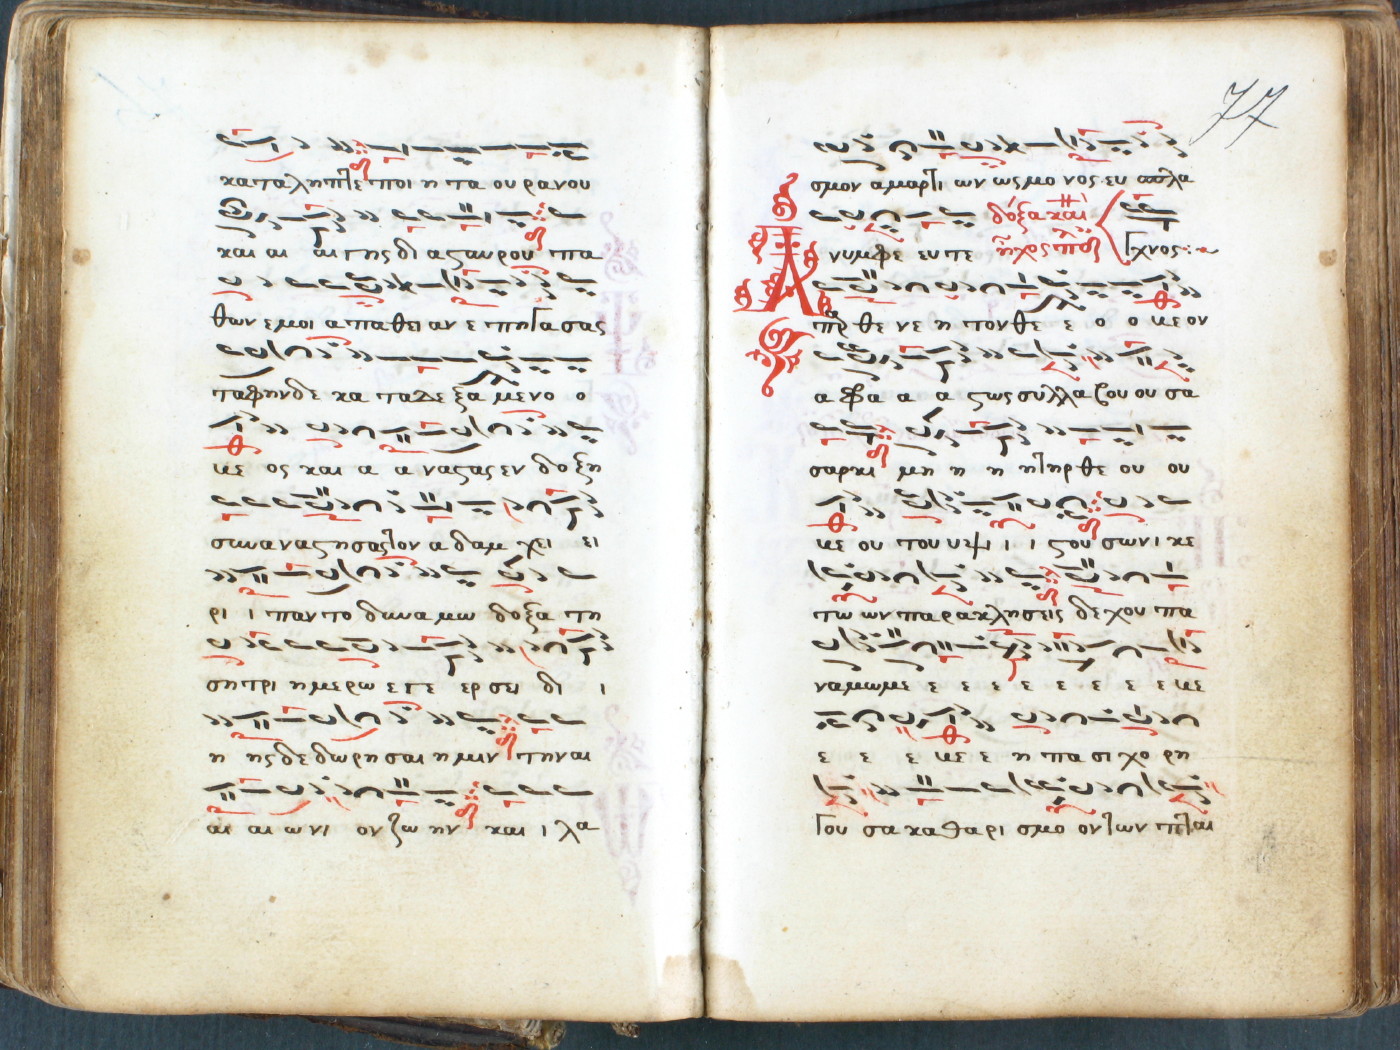 κα τα λη πτε ποι η τα ου ρα νου
και αι αι της δι α σταυ ρου πα
θων ε μοι α πα θει αν ε πη γα σας
τα φην δε κα τα δε ξα με νο ο
νε ος και α α να στας εν δο ξη
συν α να στη σας τον α δαμ χει ει
ρι ι παν το δυ να μω δο ξα τη
ση τρι η με ρω ε γε ερ σει δι ι
η ης δε δω ρη σαι η μιν την αι
αι αι ω νι ον ζω ην και ι λα
77
σμον α μαρτι ων ως μο νος ευ σπλα
δόξα καὶ
Α νυμφε ευ τε ἦχος πλ γχνος
παρ θε νε η τον θε ε ο ο νε ον
α φρα α α στως συλλα βου ου σα
σαρκι μη η η η τηρ θε ου ου
νε ου του υψι ι ι στου σων ι κε
τω ων παρακλησεις δεχου πα
ναμωμε ε ε ε ε ε ε ε νε
ε ε ε νε ε η πα σι χο ρη
γου σα κα θα ρι σμο ον των πται